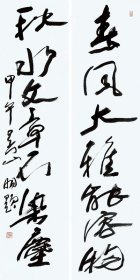 春風大雅能容物
秋水文章不染塵
甲午